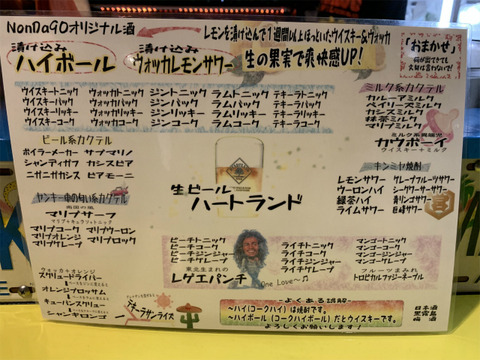 NonDaGOオリジナル酒
レモンを漬け込んで1週間以上ほっといたウイスキー&ウォッカ
漬け込み
ハイボール
漬け込み
ウォッカレモンサワー
生の果実で爽快感UP!
「おまかせ」
何が出てきても
文句は言わないで!
ウイスキートニック ウォッカトニック ジントニック ラムトニック テキーラトニック
ウイスキーバック ウォッカバック ジンバック ラムバック テキーラバック
ウイスキーリッキー ウォッカリッキー ジンリッキー ラムリッキー テキーラリッキー
ウイスキーコーク ウォッカコーク ジンコーク ラムコーク テキーラコーク
ミルク系カクテル
カルーアミルク
ベイリーズミルク
ピーチミルク
抹茶ミルク
マリブミルク
ミルク系異端児
カウボーイ
ウイスキー+ミルク
ビール系カクテル
ボイラーメーカー サブマリノ
シャンディガフ カシスビア
ニガニガカシス ピアモーニ
生ビール
ハートランド
キンミヤ焼酎
レモンサワー グレープフルーツサワー
ウーロンハイ シークワーサーサワー
緑茶ハイ 青リンゴサワー
ライムサワー 巨峰サワー
ヤンキー車の匂い系カクテル
南国の風
マリブサーフ
マリブコーク マリブウーロン
マリブオレンジ マリブロック
マリブグレープ
ピーチトニック
ピーチコーク
ピーチジンジャー
ピーチグレープ
東北生まれの
レゲエパンチ
One Love~♫
ライチトニック
ライチコーク
ライチジンジャー
ライチグレープ
マンゴートニック
マンゴーコーク
マンゴージンジャー
マンゴーグレープ
フルーツまみれ
トロピカルファジーネーブル
ウォッカ+オレンジ
スクリュードライバー
オレンジブロッサム
キューバンスクリュー
シャンギロンゴ
テキーラサンライズ
~よくある誤解~
~ハイ(コークハイ)は焼酎です。
~ハイボール(コークハイボール)だとウイスキーです。
よろしくお願いします!
日本酒
黒霧島
梅酒